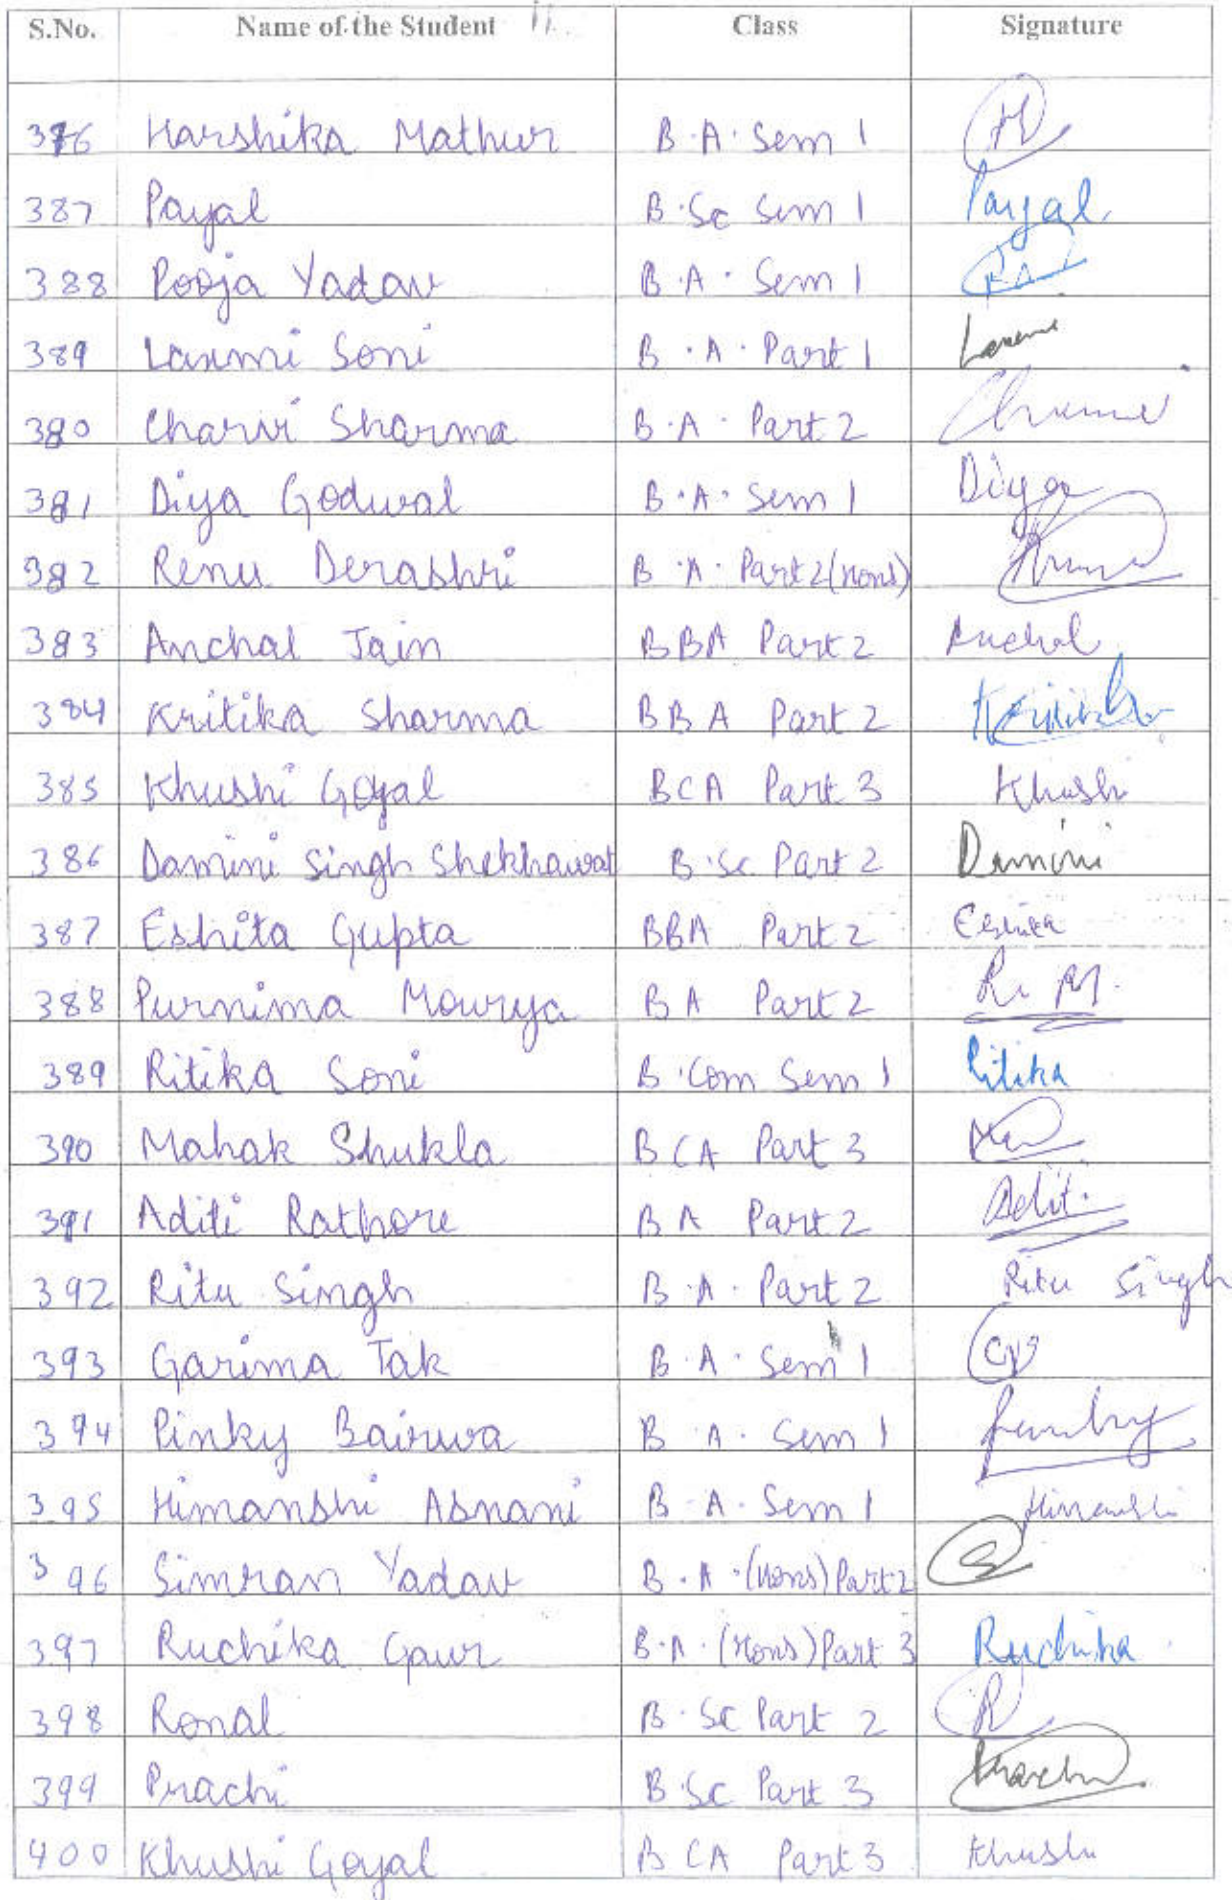 S.No. Name of the Student Class Signature
376 Harshika Mathur B.A. Sem 1 H
387 Payal B.Sc Sem 1 Payal
388 Pooja Yadav B.A. Sem 1
389 Laxmi Soni B.A. Part 1 Laxmi
380 Charvi Sharma B.A. Part 2
381 Diya Godwal B.A. Sem 1 Diya
382 Renu Derashri B.A. Part 2 (Hons)
383 Anchal Jain BBA Part 2 Anchal
384 Kritika Sharma BBA Part 2 Kritika
385 Khushi Goyal BCA Part 3 Khushi
386 Damini Singh Shekhawat B.Sc. Part 2 Damini
387 Eshita Gupta BBA Part 2 Eshita
388 Purnima Mourya BA Part 2
389 Ritika Soni B.Com Sem 1 Ritika
390 Mahak Shukla BCA Part 3
391 Aditi Rathore BA Part 2 Aditi
392 Ritu Singh B.A. Part 2 Ritu Singh
393 Garima Tak B.A. Sem 1
394 Pinky Bairwa B.A. Sem 1
395 Himanshi Asnani B.A. Sem 1 Himanshi
396 Simran Yadav B.A. (Hons) Part 2 S
397 Ruchika Gaur B.A. (Hons) Part 3 Ruchika
398 Ronal B.Sc Part 2 R
399 Prachi B.Sc Part 3 Prachi
400 Khushi Goyal BCA Part 3 Khushi